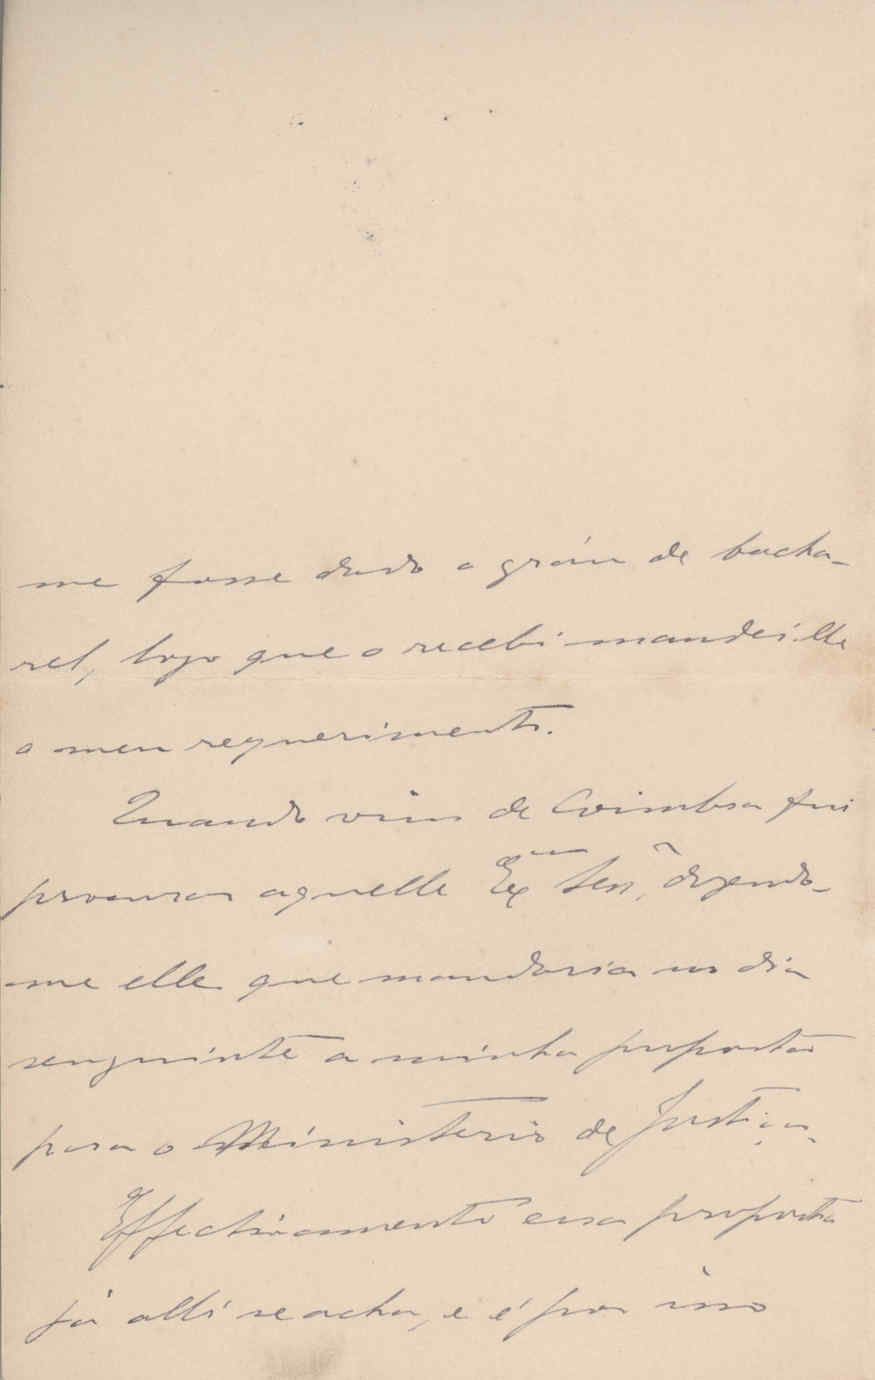 me fosse dado o gráu de bacha-
rel, logo que o recebi mandei-lhe
o meu requerimento.
Quando vim de Coimbra fui
procurar aquelle Exmo Senr, dizendo-
me elle que mandaria no dia
seuguinte a minha proposta
para o Ministerio de Justiça.
Effectivamente essa proposta
já alli se acha, e é por isso